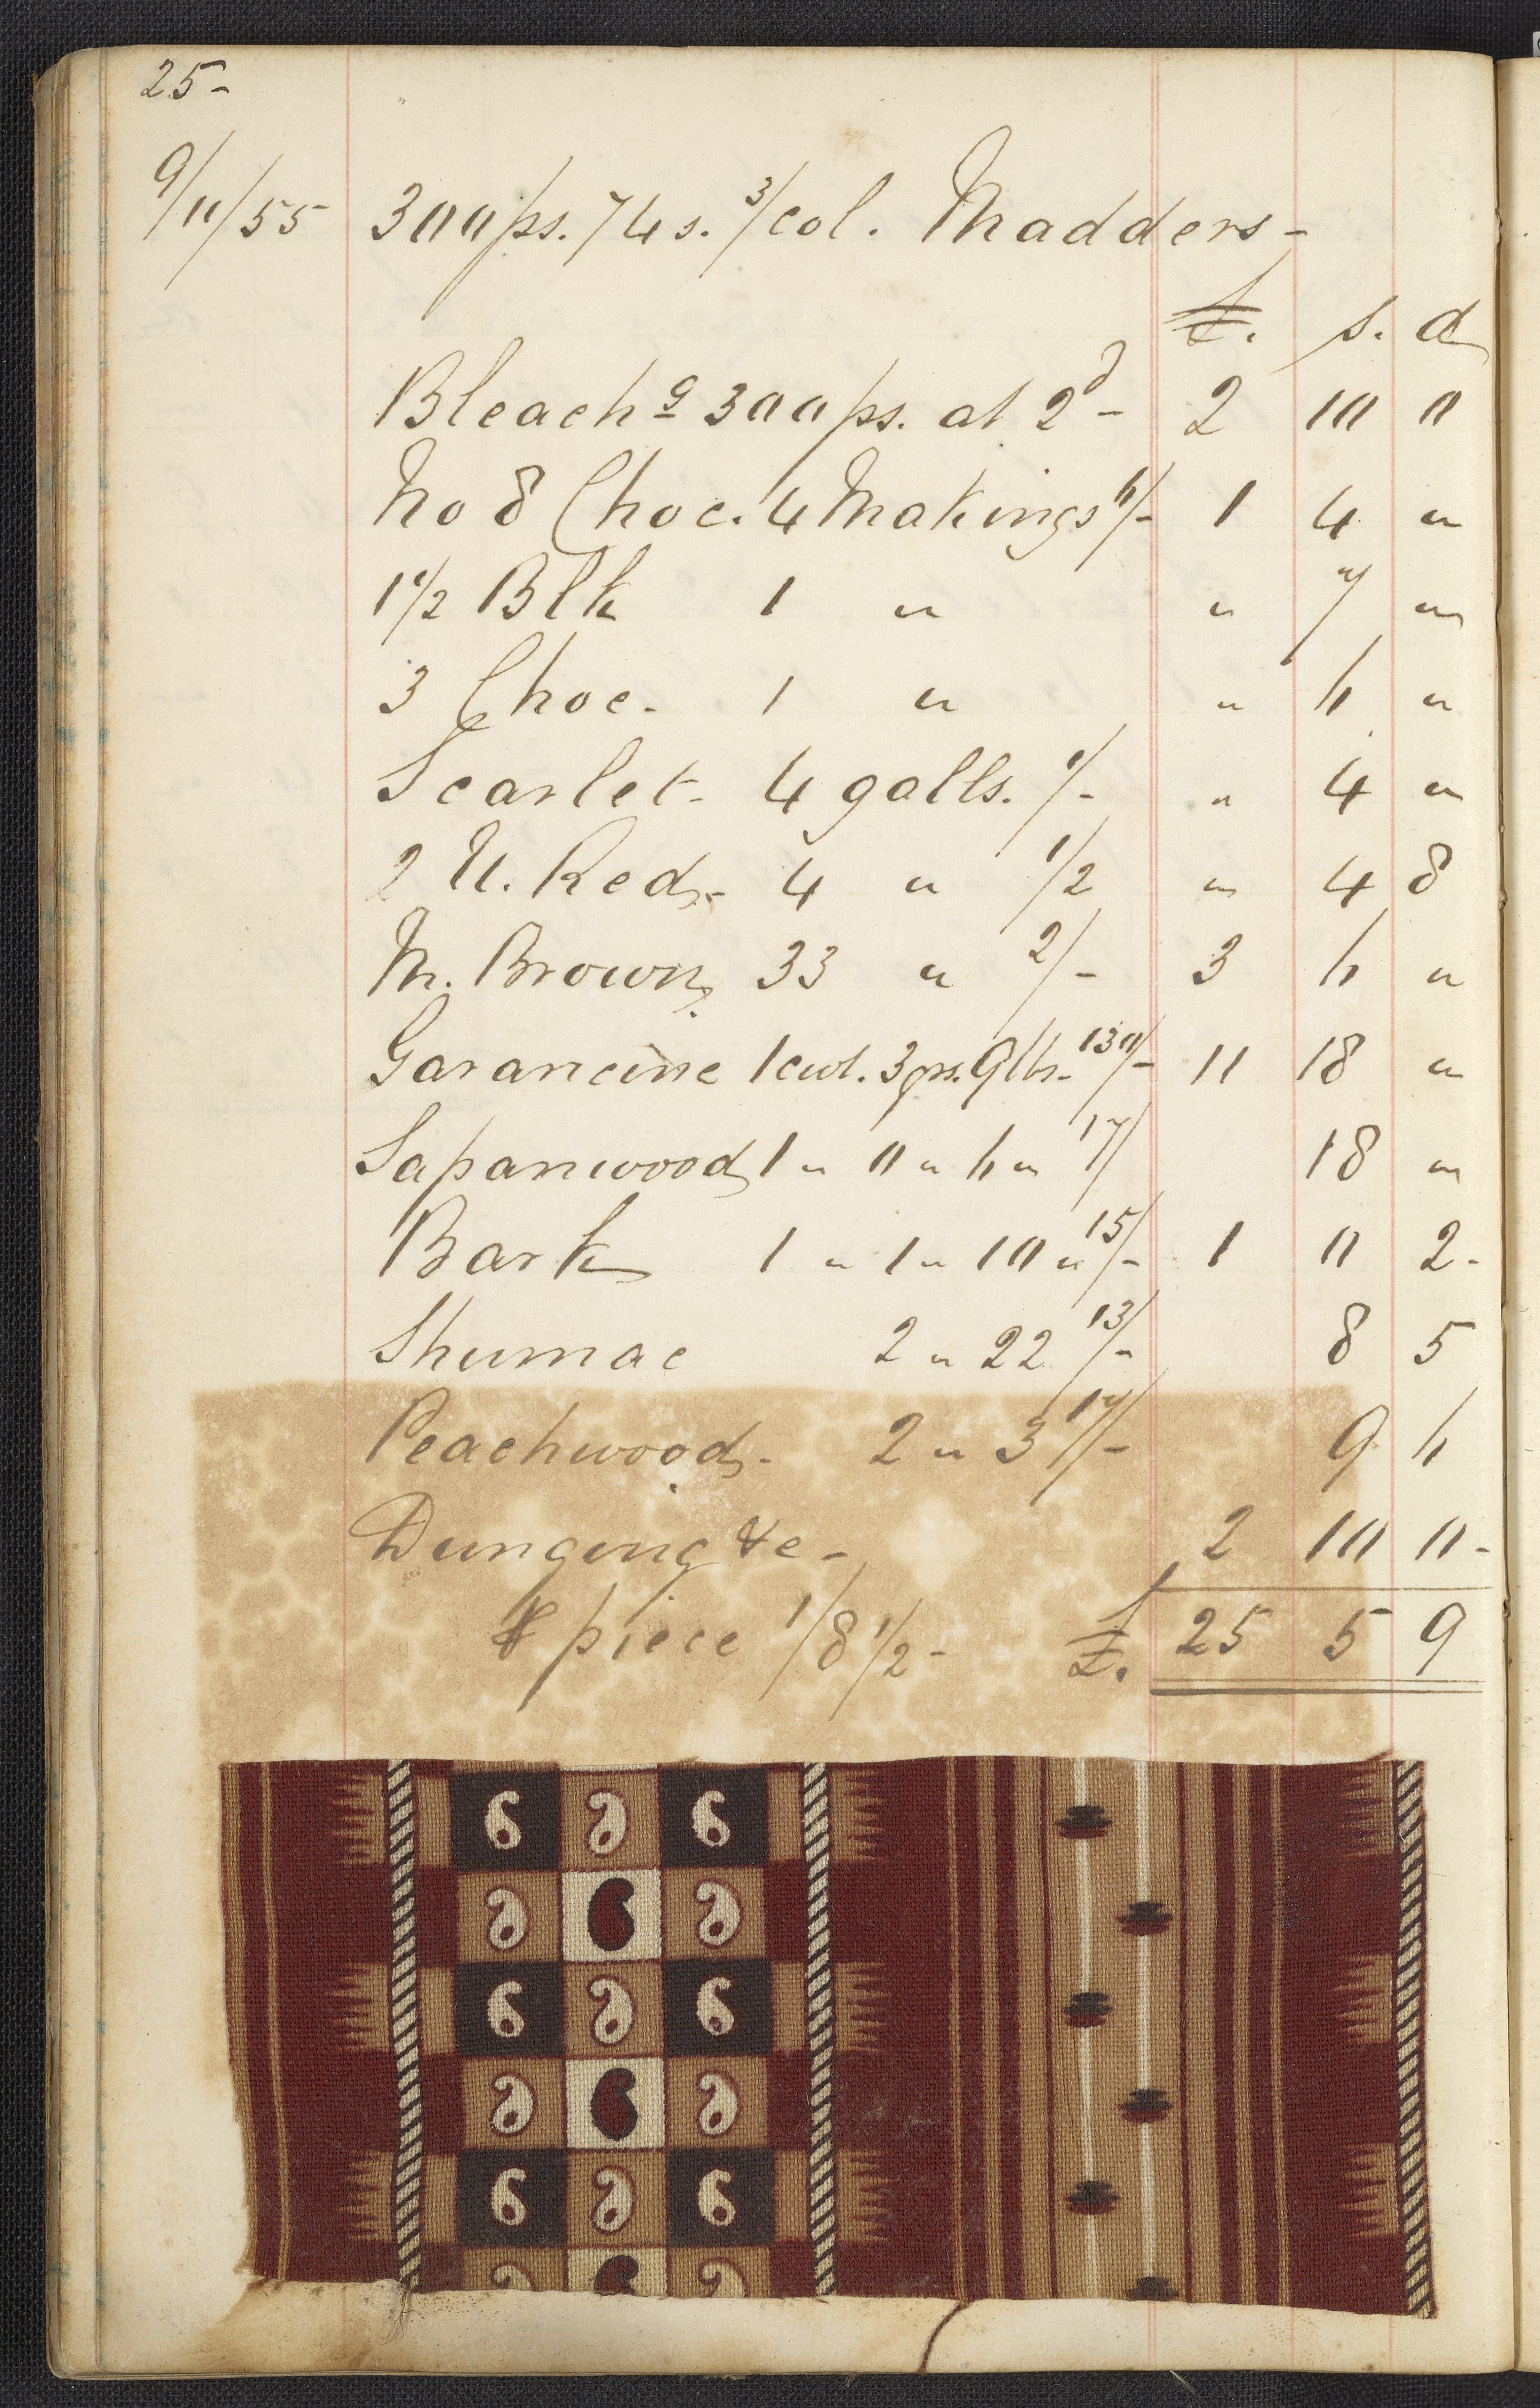 25-
9/11/55 300 ps. 74s. 3/col. Madders-
£. s. d
Bleachg 300 ps. at 2d - 2 10 0
No 8 Choc. 4 Makings 6/- 1 4 "
1 1/2 Blk 1 " " 7 "
3 Choc. 1 " " 6 "
Scarlet- 4 galls. 1/- " 4 "
2 U. Red- 4 " 1/2 " 4 8
M. Brown 33 " 2/- 3 6 "
Garancine 1 cwt. 3 qrs. 9 lbs. 130/- 11 18 "
Sapanwood 1 " 0 " 6 " 17/ 18 "
Bark 1 " 1 " 10 " 15/- 1 0 2-
Shumac 2 " 22 13/- 8 5
Peachwood- 2 " 3 17/- 9 6
Dunging &c- 2 10 0-
⅌ piece 1/8 1/2- £. 25 5 9